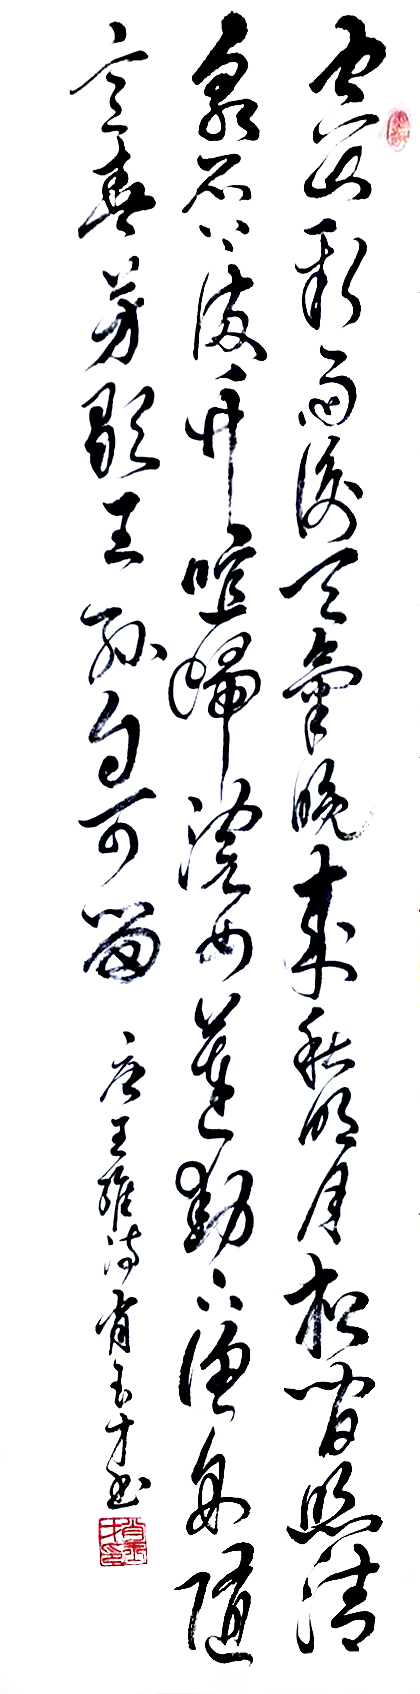 空山新雨後天氣晚來秋明月松間照清
泉石上流竹喧歸浣女蓮動下漁舟隨
意春芳歇王孫自可留
唐王維詩肖玉才书